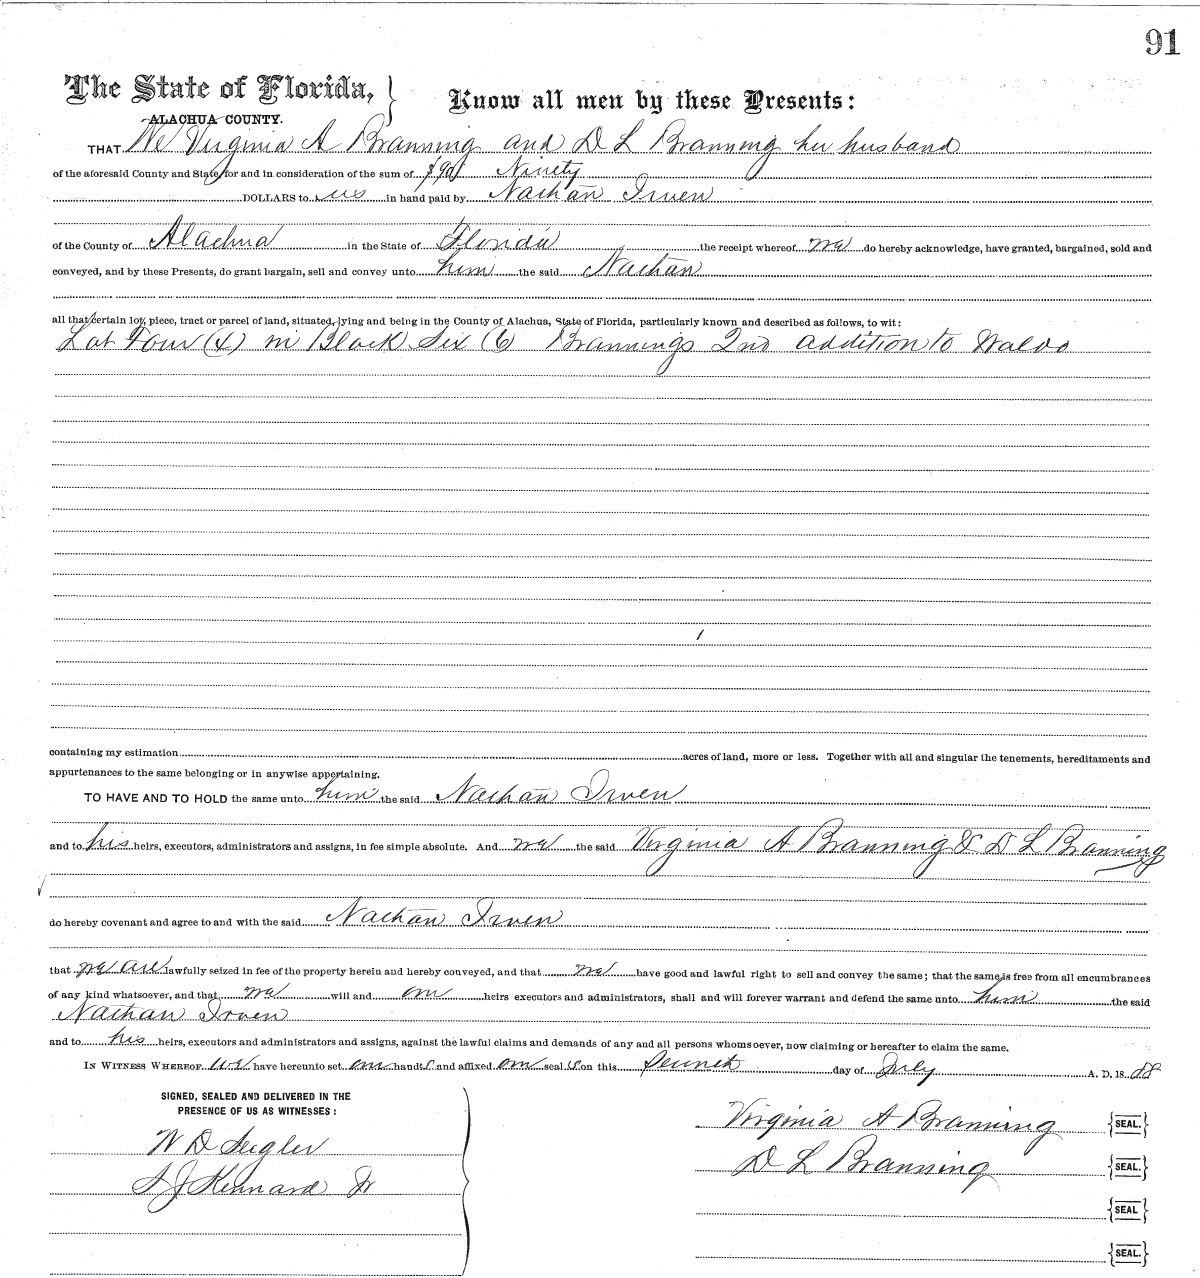 91
The State of Florida,
ALACHUA COUNTY.
Know all men by these Presents:
THAT We Virginia A Branning and D L Branning her husband
of the aforesaid County and State, for and in consideration of the sum of $90/ Ninety
DOLLARS to us in hand paid by Nathan Irven
of the County of Alachua in the State of Florida the receipt whereof we do hereby acknowledge, have granted, bargained, sold and
conveyed, and by these Presents, do grant bargain, sell and convey unto him the said Nathan
all that certain lot, piece, tract or parcel of land, situated, lying and being in the County of Alachua, State of Florida, particularly known and described as follows, to wit:
Lot Four (4) in Block Six (6 Brannings 2nd addition to Waldo
containing my estimation acres of land, more or less. Together with all and singular the tenements, hereditaments and
appurtenances to the same belonging or in anywise appertaining.
TO HAVE AND TO HOLD the same unto him the said Nathan Irven
and to his heirs, executors, administrators and assigns, in fee simple absolute. And we the said Virginia A Branning & D L Branning
do hereby covenant and agree to and with the said Nathan Irven
that we are lawfully seized in fee of the property herein and hereby conveyed, and that we have good and lawful right to sell and convey the same; that the same is free from all encumbrances
of any kind whatsoever, and that we will and our heirs executors and administrators, shall and will forever warrant and defend the same unto him the said
Nathan Irven
and to his heirs, executors and administrators and assigns, against the lawful claims and demands of any and all persons whomsoever, now claiming or hereafter to claim the same.
IN WITNESS WHEREOF we have hereunto set our hands and affixed our seals on this day of July A. D. 1888
SIGNED, SEALED AND DELIVERED IN THE
PRESENCE OF US AS WITNESSES:
Virginia A Branning {SEAL.}
W D Seigler
D L Branning {SEAL.}
Kennard Jr
{SEAL}
{SEAL.}